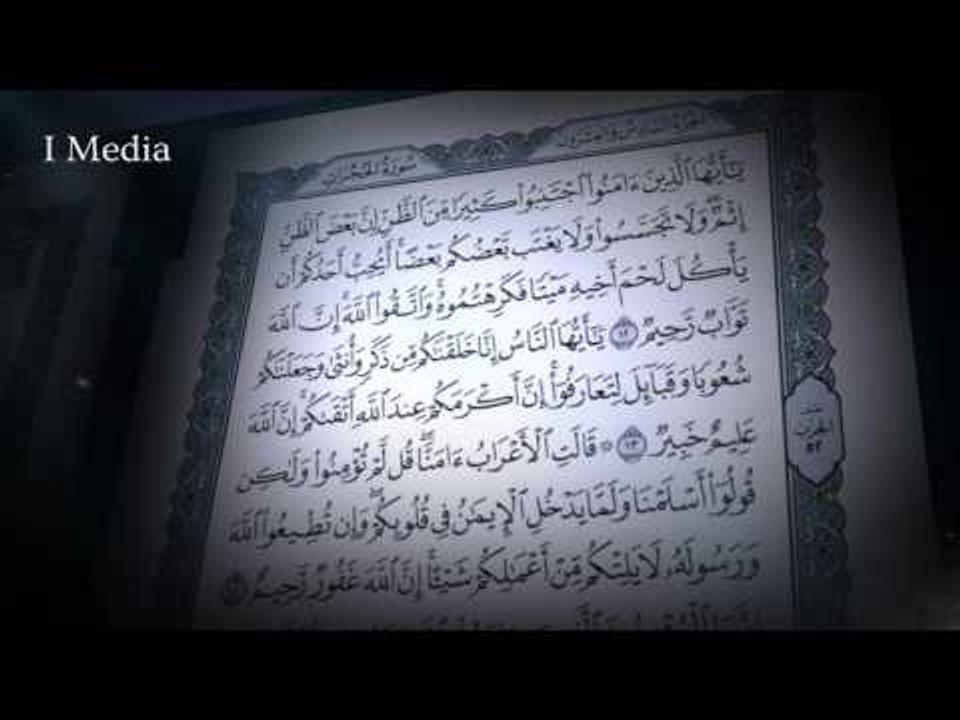 I Media
سُورَةُ الحُجُرَاتِ
الجُزْءُ السَّادِسُ وَالعِشْرُونَ
يَٰٓأَيُّهَا ٱلَّذِينَ ءَامَنُوا۟ ٱجْتَنِبُوا۟ كَثِيرًا مِّنَ ٱلظَّنِّ إِنَّ بَعْضَ ٱلظَّنِّ
إِثْمٌ وَلَا تَجَسَّسُوا۟ وَلَا يَغْتَب بَّعْضُكُم بَعْضًا أَيُحِبُّ أَحَدُكُمْ أَن
يَأْكُلَ لَحْمَ أَخِيهِ مَيْتًا فَكَرِهْتُمُوهُ وَٱتَّقُوا۟ ٱللَّهَ إِنَّ ٱللَّهَ
تَوَّابٌ رَّحِيمٌ ١٢ يَٰٓأَيُّهَا ٱلنَّاسُ إِنَّا خَلَقْنَٰكُم مِّن ذَكَرٍ وَأُنثَىٰ وَجَعَلْنَٰكُمْ
شُعُوبًا وَقَبَآئِلَ لِتَعَارَفُوٓا۟ إِنَّ أَكْرَمَكُمْ عِندَ ٱللَّهِ أَتْقَىٰكُمْ إِنَّ ٱللَّهَ
عَلِيمٌ خَبِيرٌ ١٣ ۞ قَالَتِ ٱلْأَعْرَابُ ءَامَنَّا ۖ قُل لَّمْ تُؤْمِنُوا۟ وَلَٰكِن
قُولُوٓا۟ أَسْلَمْنَا وَلَمَّا يَدْخُلِ ٱلْإِيمَٰنُ فِى قُلُوبِكُمْ ۖ وَإِن تُطِيعُوا۟ ٱللَّهَ
وَرَسُولَهُۥ لَا يَلِتْكُم مِّنْ أَعْمَٰلِكُمْ شَيْـًٔا إِنَّ ٱللَّهَ غَفُورٌ رَّحِيمٌ ١٤
الحزب
٥٢